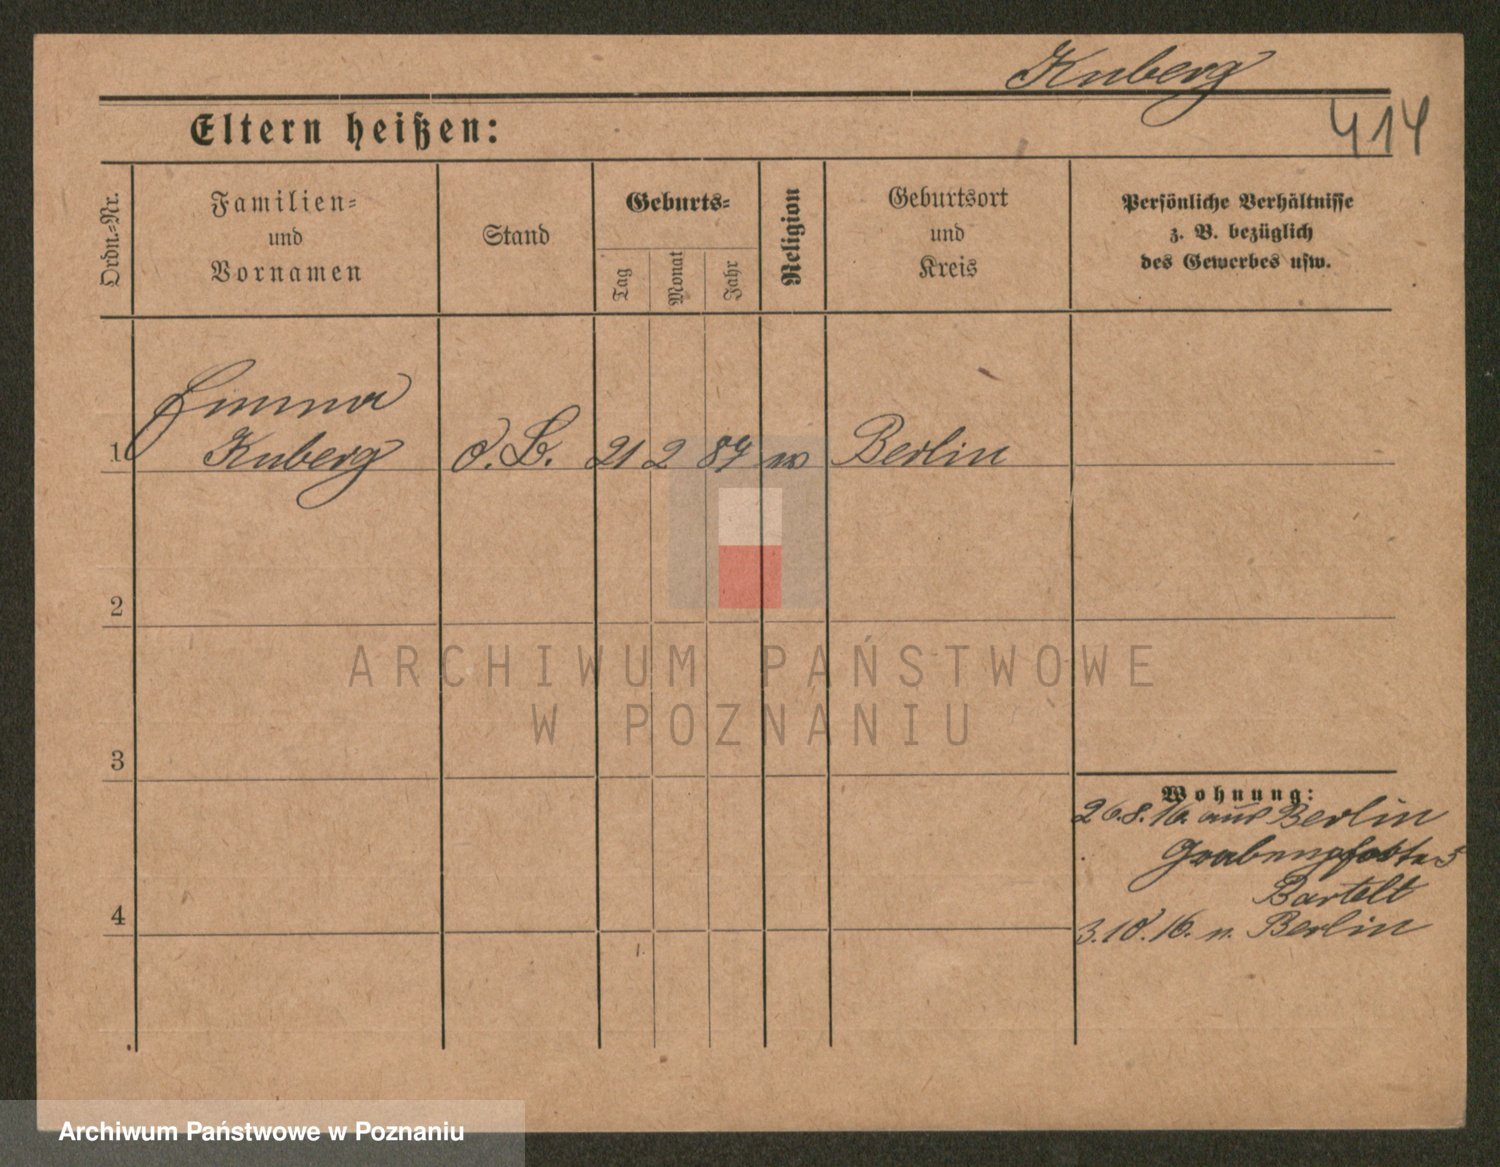 Knberg
414
Eltern heißen:
Ordn.=Nr.
Familien=
und
Vornamen
Stand
Geburts=
Tag
Monat
Jahr
Religion
Geburtsort
und
Kreis
Persönliche Verhältnisse
z. B. bezüglich
des Gewerbes usw.
Emma
1 Knberg
21 2 Berlin
2
ARCHIWUM PAŃSTWOWE
W POZNANIU
3
Wohnung:
26.8.16. aus Berlin
Bartelt
4
3.10.16. n. Berlin
Archiwum Państwowe w Poznaniu